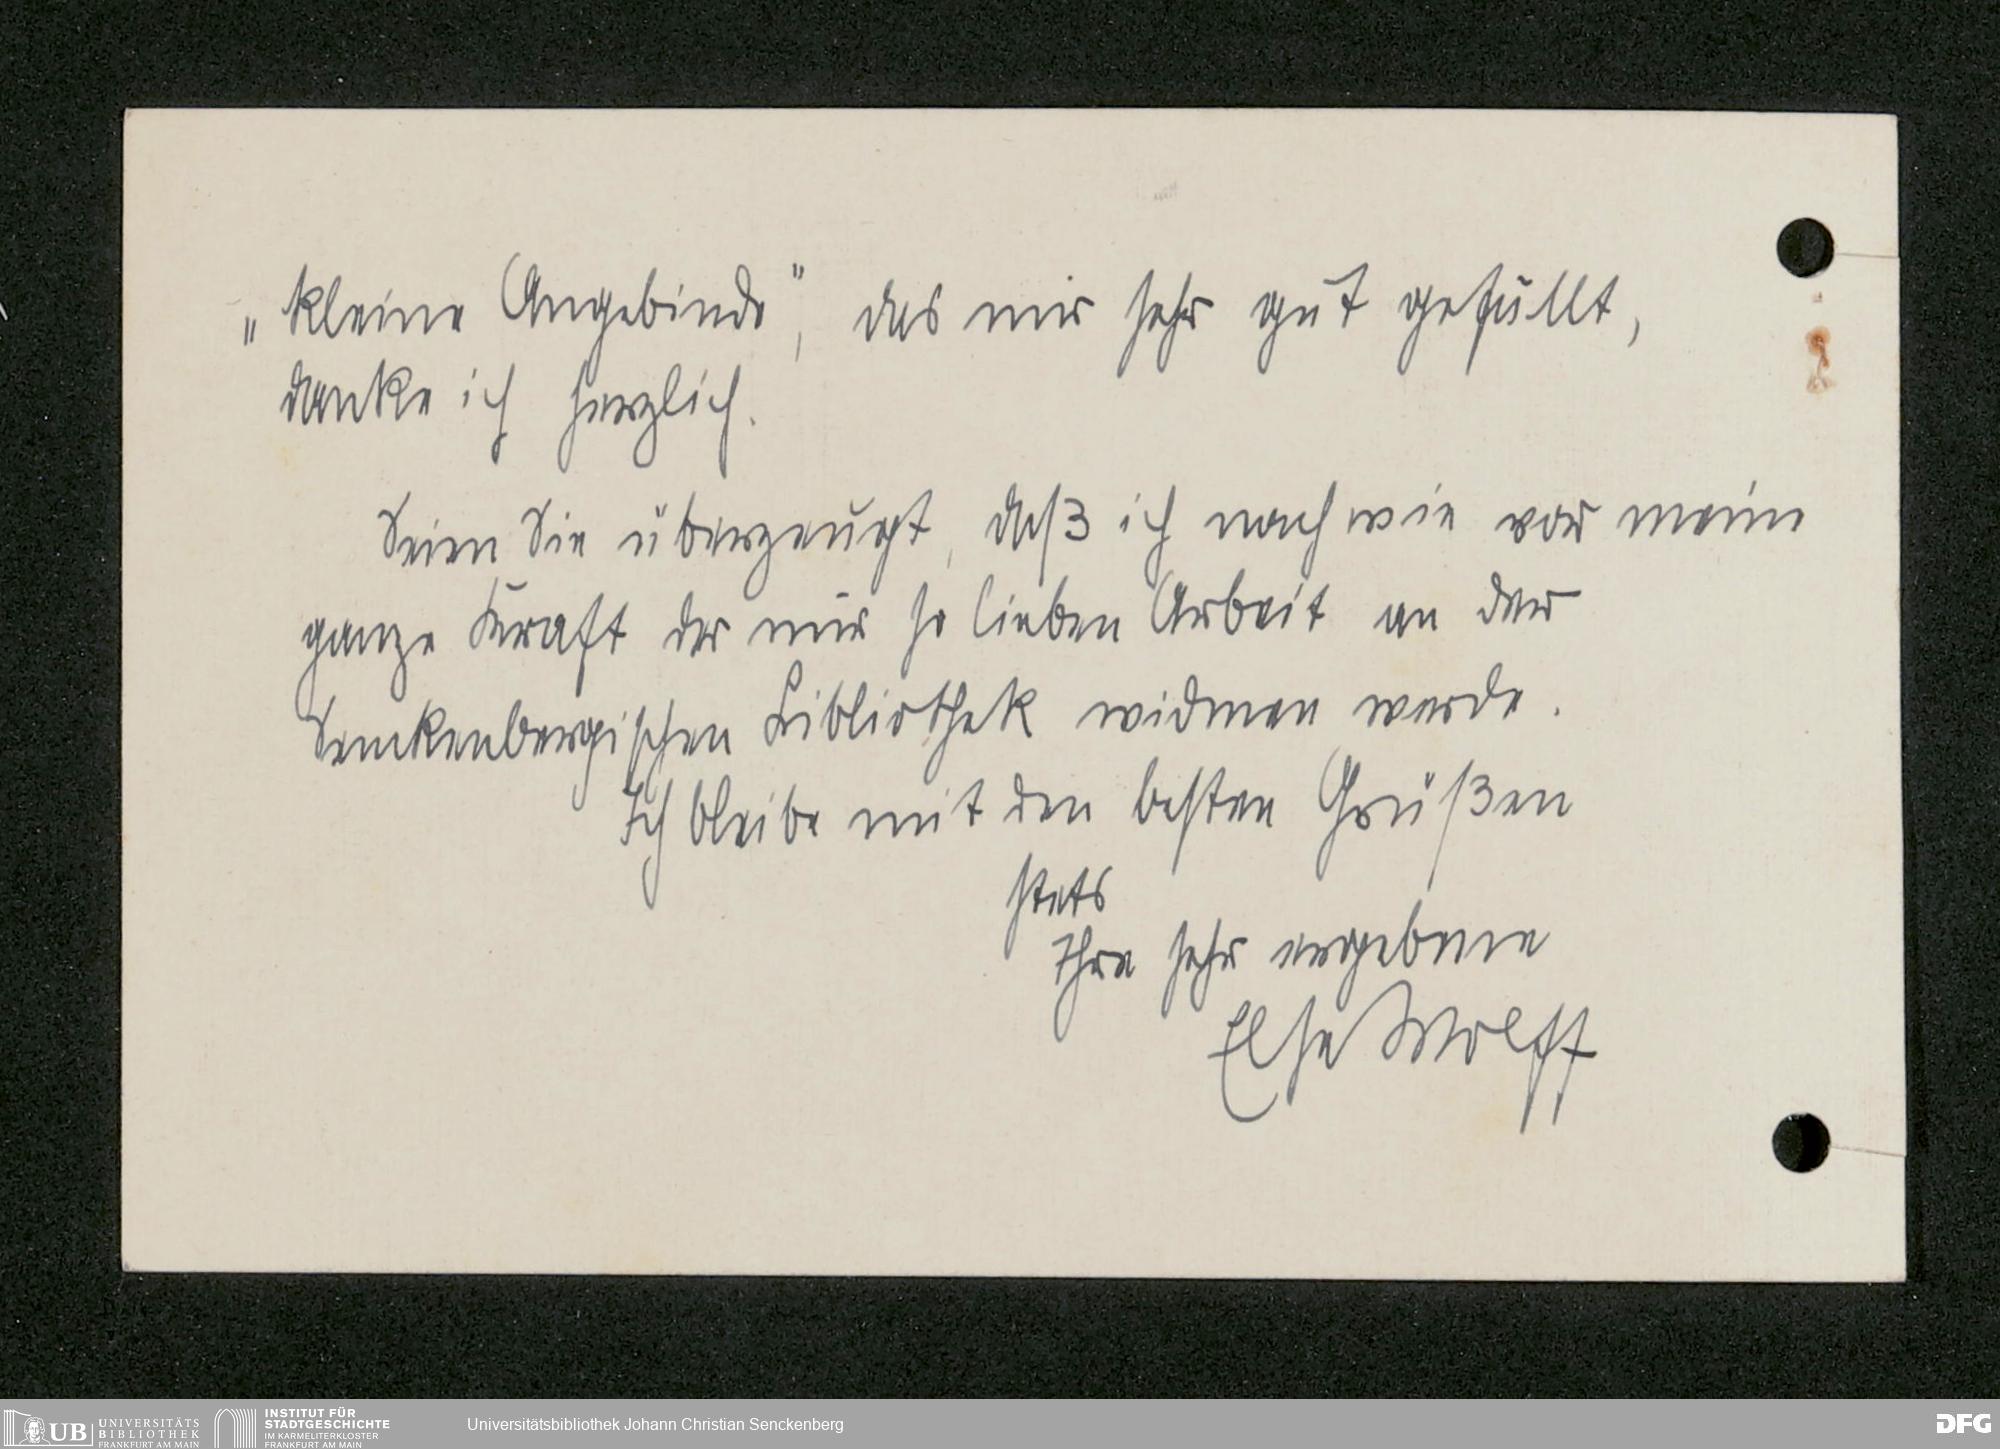 „kleine Angebinde", das mir sehr gut gefällt,
danke ich herzlich.
Seien Sie überzeugt, daß ich nach wie vor meine
ganze Kraft der mir so lieben Arbeit an der
Senckenbergischen Bibliothek widmen werde.
Ich bleibe mit den besten Grüßen
stets
Ihre sehr ergebene
Else Wolff
UB UNIVERSITÄTS
BIBLIOTHEK
FRANKFURT AM MAIN
INSTITUT FÜR
STADTGESCHICHTE
IM KARMELITERKLOSTER
FRANKFURT AM MAIN
Universitätsbibliothek Johann Christian Senckenberg
DFG